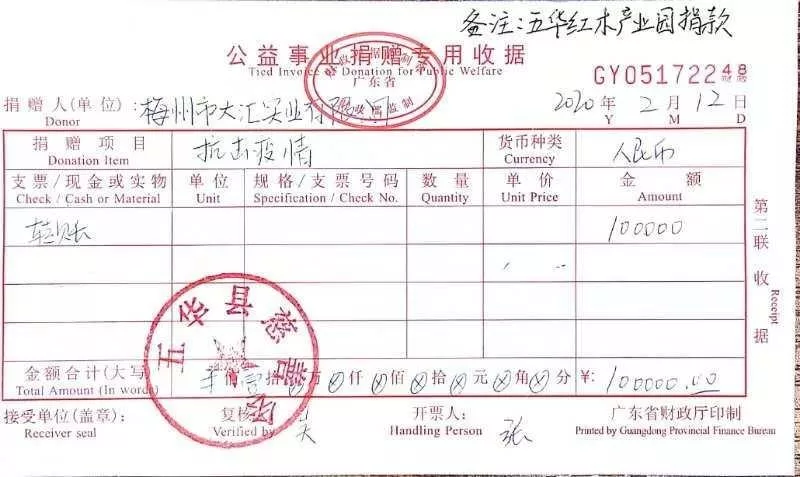 备注:五华红木产业园捐款
公益事业捐赠专用收据
Tied Invoice of Donation for Public Welfare
广东省
GY05172248
捐赠人(单位):梅州市大汇实业有限公司
Donor
2020年2月12日
Y M D
捐赠项目 抗击疫情 货币种类 人民币
Donation Item Currency
支票/现金或实物 单位 规格/支票号码 数量 单价 金额
Check / Cash or Material Unit Specification / Check No. Quantity Unit Price Amount
转账 100000
第二联收据
Receipt
五华县慈善
金额合计(大写) 壹拾 万 仟 佰 拾 元 角 分 ¥: 100000.00
Total Amount (In words)
接受单位(盖章): 复核 开票人: 张 广东省财政厅印制
Receiver seal Verified by Handling Person Printed by Guangdong Provincial Finance Bureau